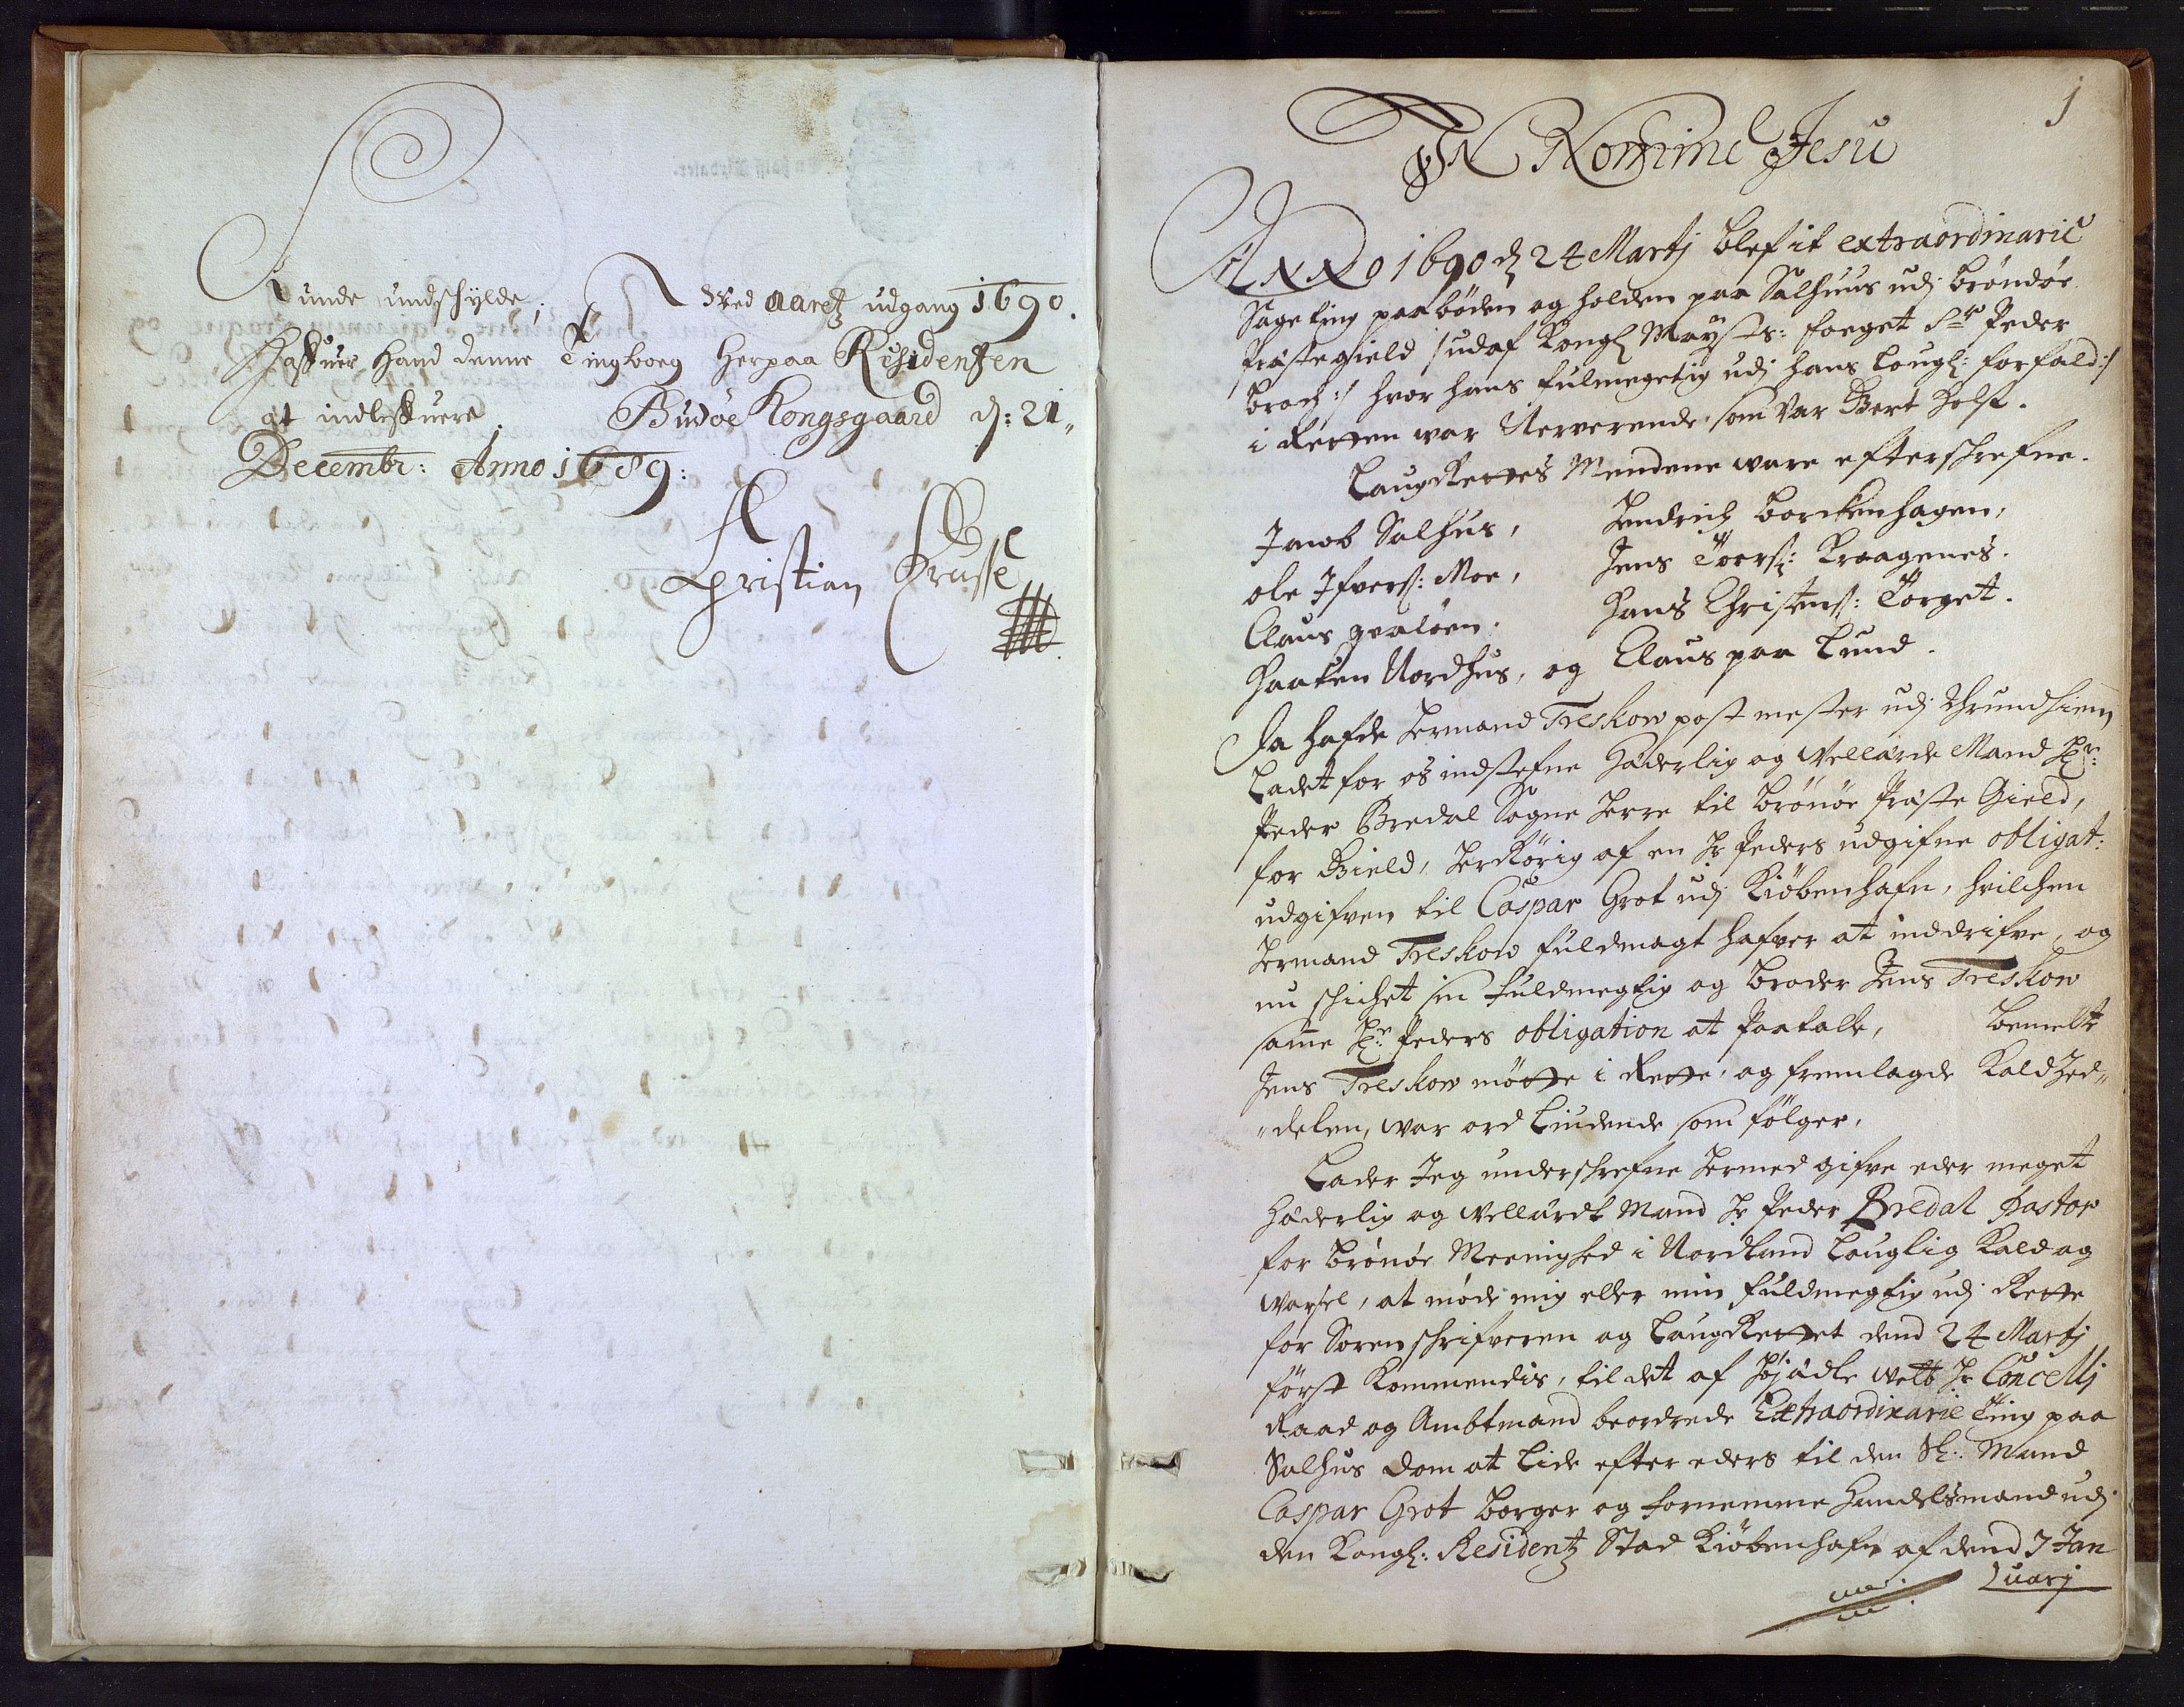 Kunde undschylde; Wed aaretz udgang 1690.
Haffuer hand denne Tingboeg herpaa Residentzen
at indleffuere. Budøe Kongsgaard d: 21,,
Decembr: Anno 1689:
Christian Krusse
1
IN Nomine Jesu
ANNO 1690 d 24 Martj blef it extraordinarie
Sageting paabøden og holden paa Salhuus udj Brøndøe
Præstegield /udaf Kongl Mayts: foeget Sr Peder
Broch:/ hvor hans fulmegetig udj hans Lougl: forfald:/
i Retten war Nerverende, som var Bert Holst.
LaugRettes Mendene ware efterschrefne.
Jacob Salhus, Hendrich Borckenhagen,
Ole Ifvers: Moe, Jens Toers: Kraagenes.
Claus qvaløen. Hans Christens: Torget.
Haaken Nordhus, og Claus paa Lund.
Da hafde Hermand Treskow postmester udj Thrundhiem
Ladet for os indstefne Hæderlig og Vellærde Mand Hr:
Peder Bredal Sogne Herre til Brønøe Præste Gield,
for Gield, herRørig af en Hr Peders udgifne obligat:
udgifven til Caspar Grot udj Kiøbenhafn, hvilchen
Hermand Treskow fuldmagt hafver at inddrifve, og
nu schichet sin fuldmegtig og broder Jens Treskow
samme Hr: Peders obligation at paatalle, bemelte
Jens Treskow møtte i Rette, og fremlagde Kaldzed,,
,,delen, war ord Liudende som følger,
Lader Jeg underschrefne hermed gifve eder meget
Hæderlig og Vellærdt Mand Hr Peder Bredal Pastor
for Brønøe Meenighed i Nordland Louglig Kald og
warsel, at møde mig eller min fuldmegtig udj Rette
for Sorenschrifveren og LaugRettet dend 24 Martj
først Kommendis, til det af Høyædle Welb Hr Cancellj
Raad og Ambtmand beordrede Extraordinarie ting paa
Salhus dom at Lide efter eders til den Sl: Mand
Caspar Grot borger og fornemme Handelsmand udj
den Kongl: Residentz Stad Kiøbenhafn af dend 7 Jan
uarj